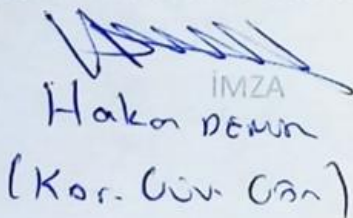 İMZA
Hakan DEMİR
(Kor. Güv. Gör)